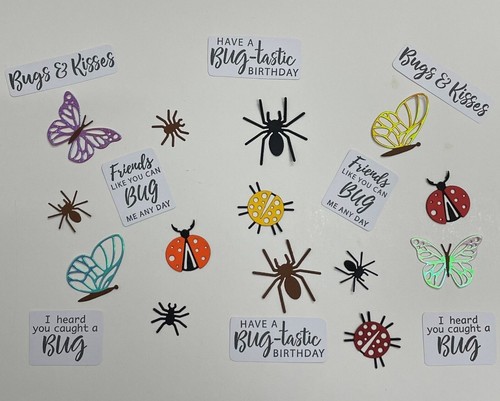 Bugs & Kisses
HAVE A
Bug-tastic
BIRTHDAY
Bugs & Kisses
Friends
LIKE YOU CAN
Bug
ME ANY DAY
Friends
LIKE YOU CAN
Bug
ME ANY DAY
I heard
you caught a
BUG
HAVE A
Bug-tastic
BIRTHDAY
I heard
you caught a
BUG